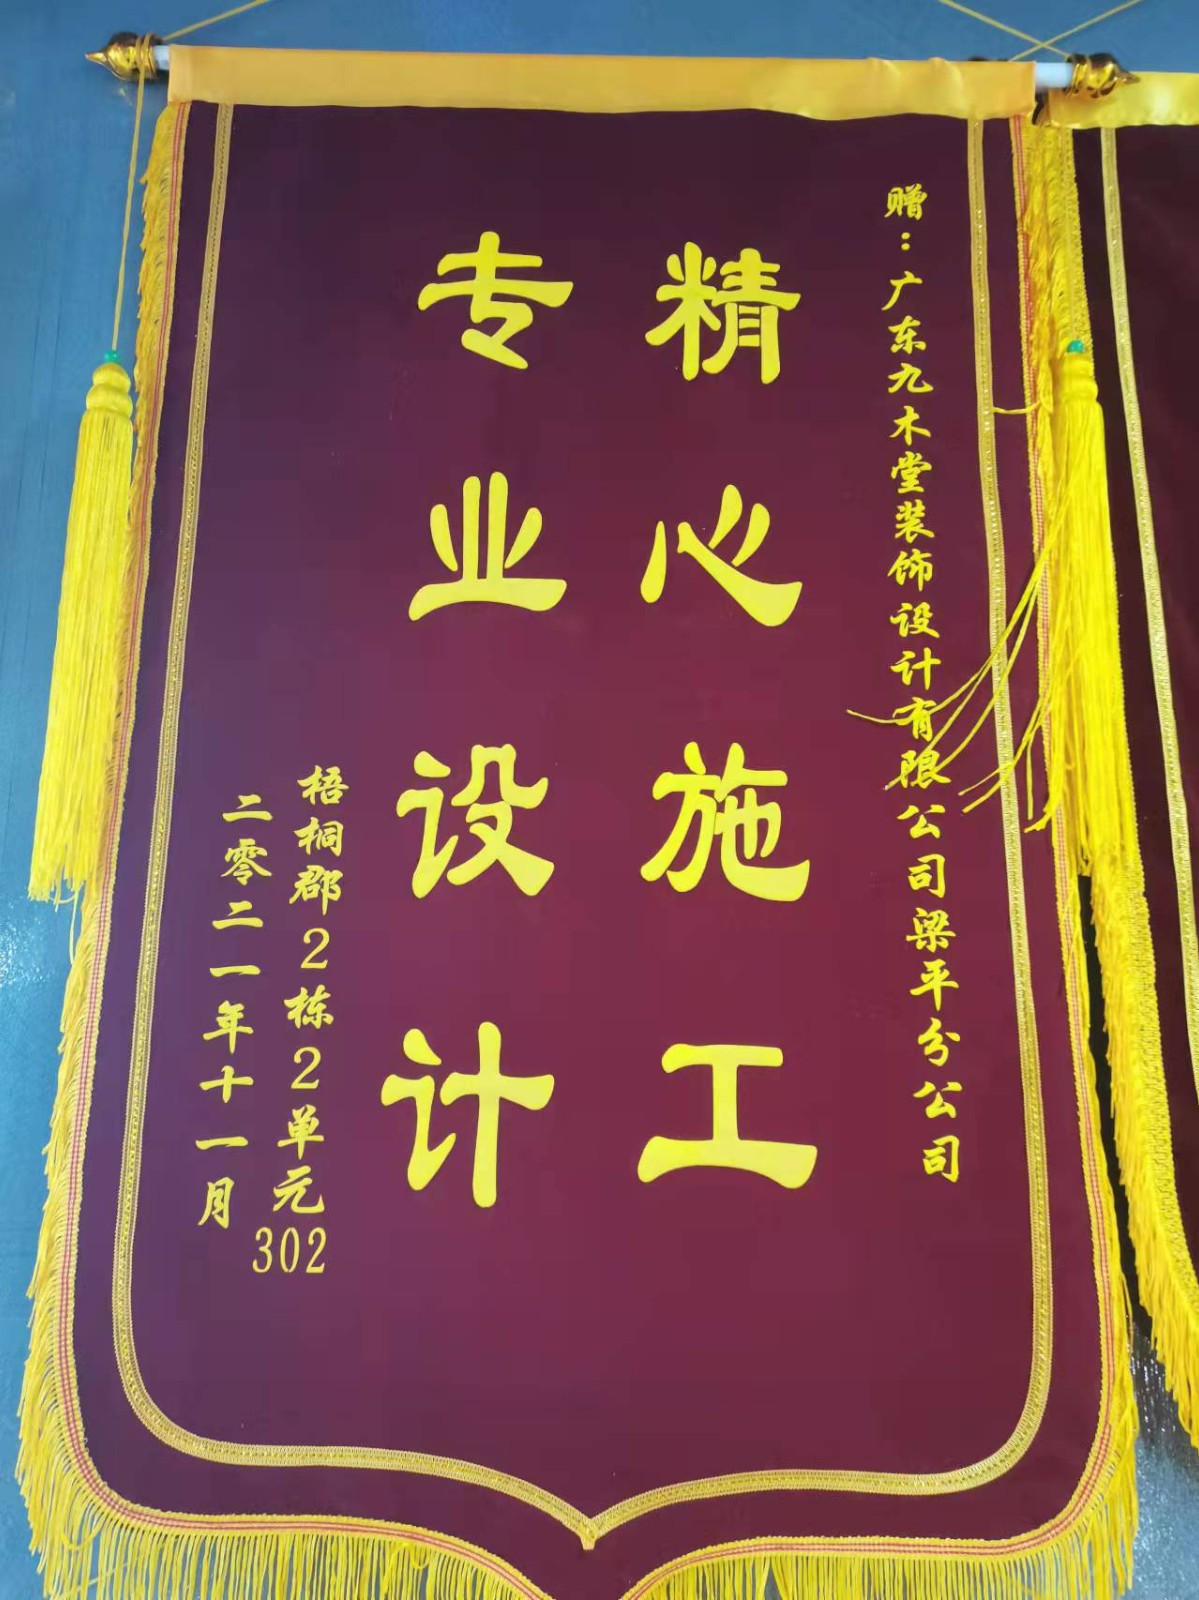 赠：广东九木堂装饰设计有限公司梁平分公司
精心施工
专业设计
梧桐郡2栋2单元302
二零二一年十一月